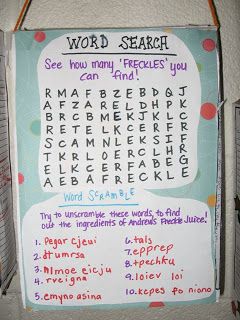 WORD SEARCH
See how many 'FRECKLES' you
can find!
R M A F B Z E B D Q J
A F Z A R E L D H P K
B R C B M E K J K L C
R E T E L K C E R F R
S C A M N L E K S I F
T K R L O E R C L H R
E L K C E R F A B E G
A E B A F R E C K L E
Word SCRAMBLE
Try to unscramble these words, to find
out the ingredients of Andrew's Freckle Juice!
1. pegar cjeui
2. dtumrsa
3. nlmoe eicju
4. rveigna
5. emyno asina
6. tals
7. epprep
8. tpechku
9. loiev loi
10. kcpes fo niono